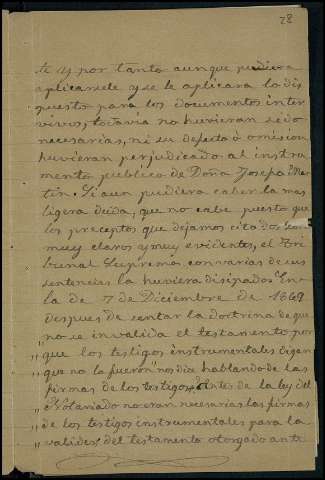 28
te y por tanto aunque pudiera
aplicarsele y se le aplicara lo dis
puesto para los documentos inter
vivos, todavia no huvieran sido
necesarias, ni su defecto ú omision
huvieran perjudicado al instru
mento publico de Doña Josefa Mar
tin. Si aun pudiera caber la mas
ligera duda, que no cabe puesto que
los preceptos que dejamos citados son
muy claros y muy evidentes, el Tri
bunal Supremo, con varias de sus
sentencias la huviera disipado. En
la de 7 de Diciembre de 1869
despues de sentar la doctrina de que
„ no se invalida el testamento por
„ que los testigos instrumentales digan
„ que no lo fueron" nos dice hablando de las
firmas de los testigos „Antes de la ley del
„ Notariado no eran necesarias las firmas
„ de los testigos instrumentales para la
„ validez del testamento otorgado ante